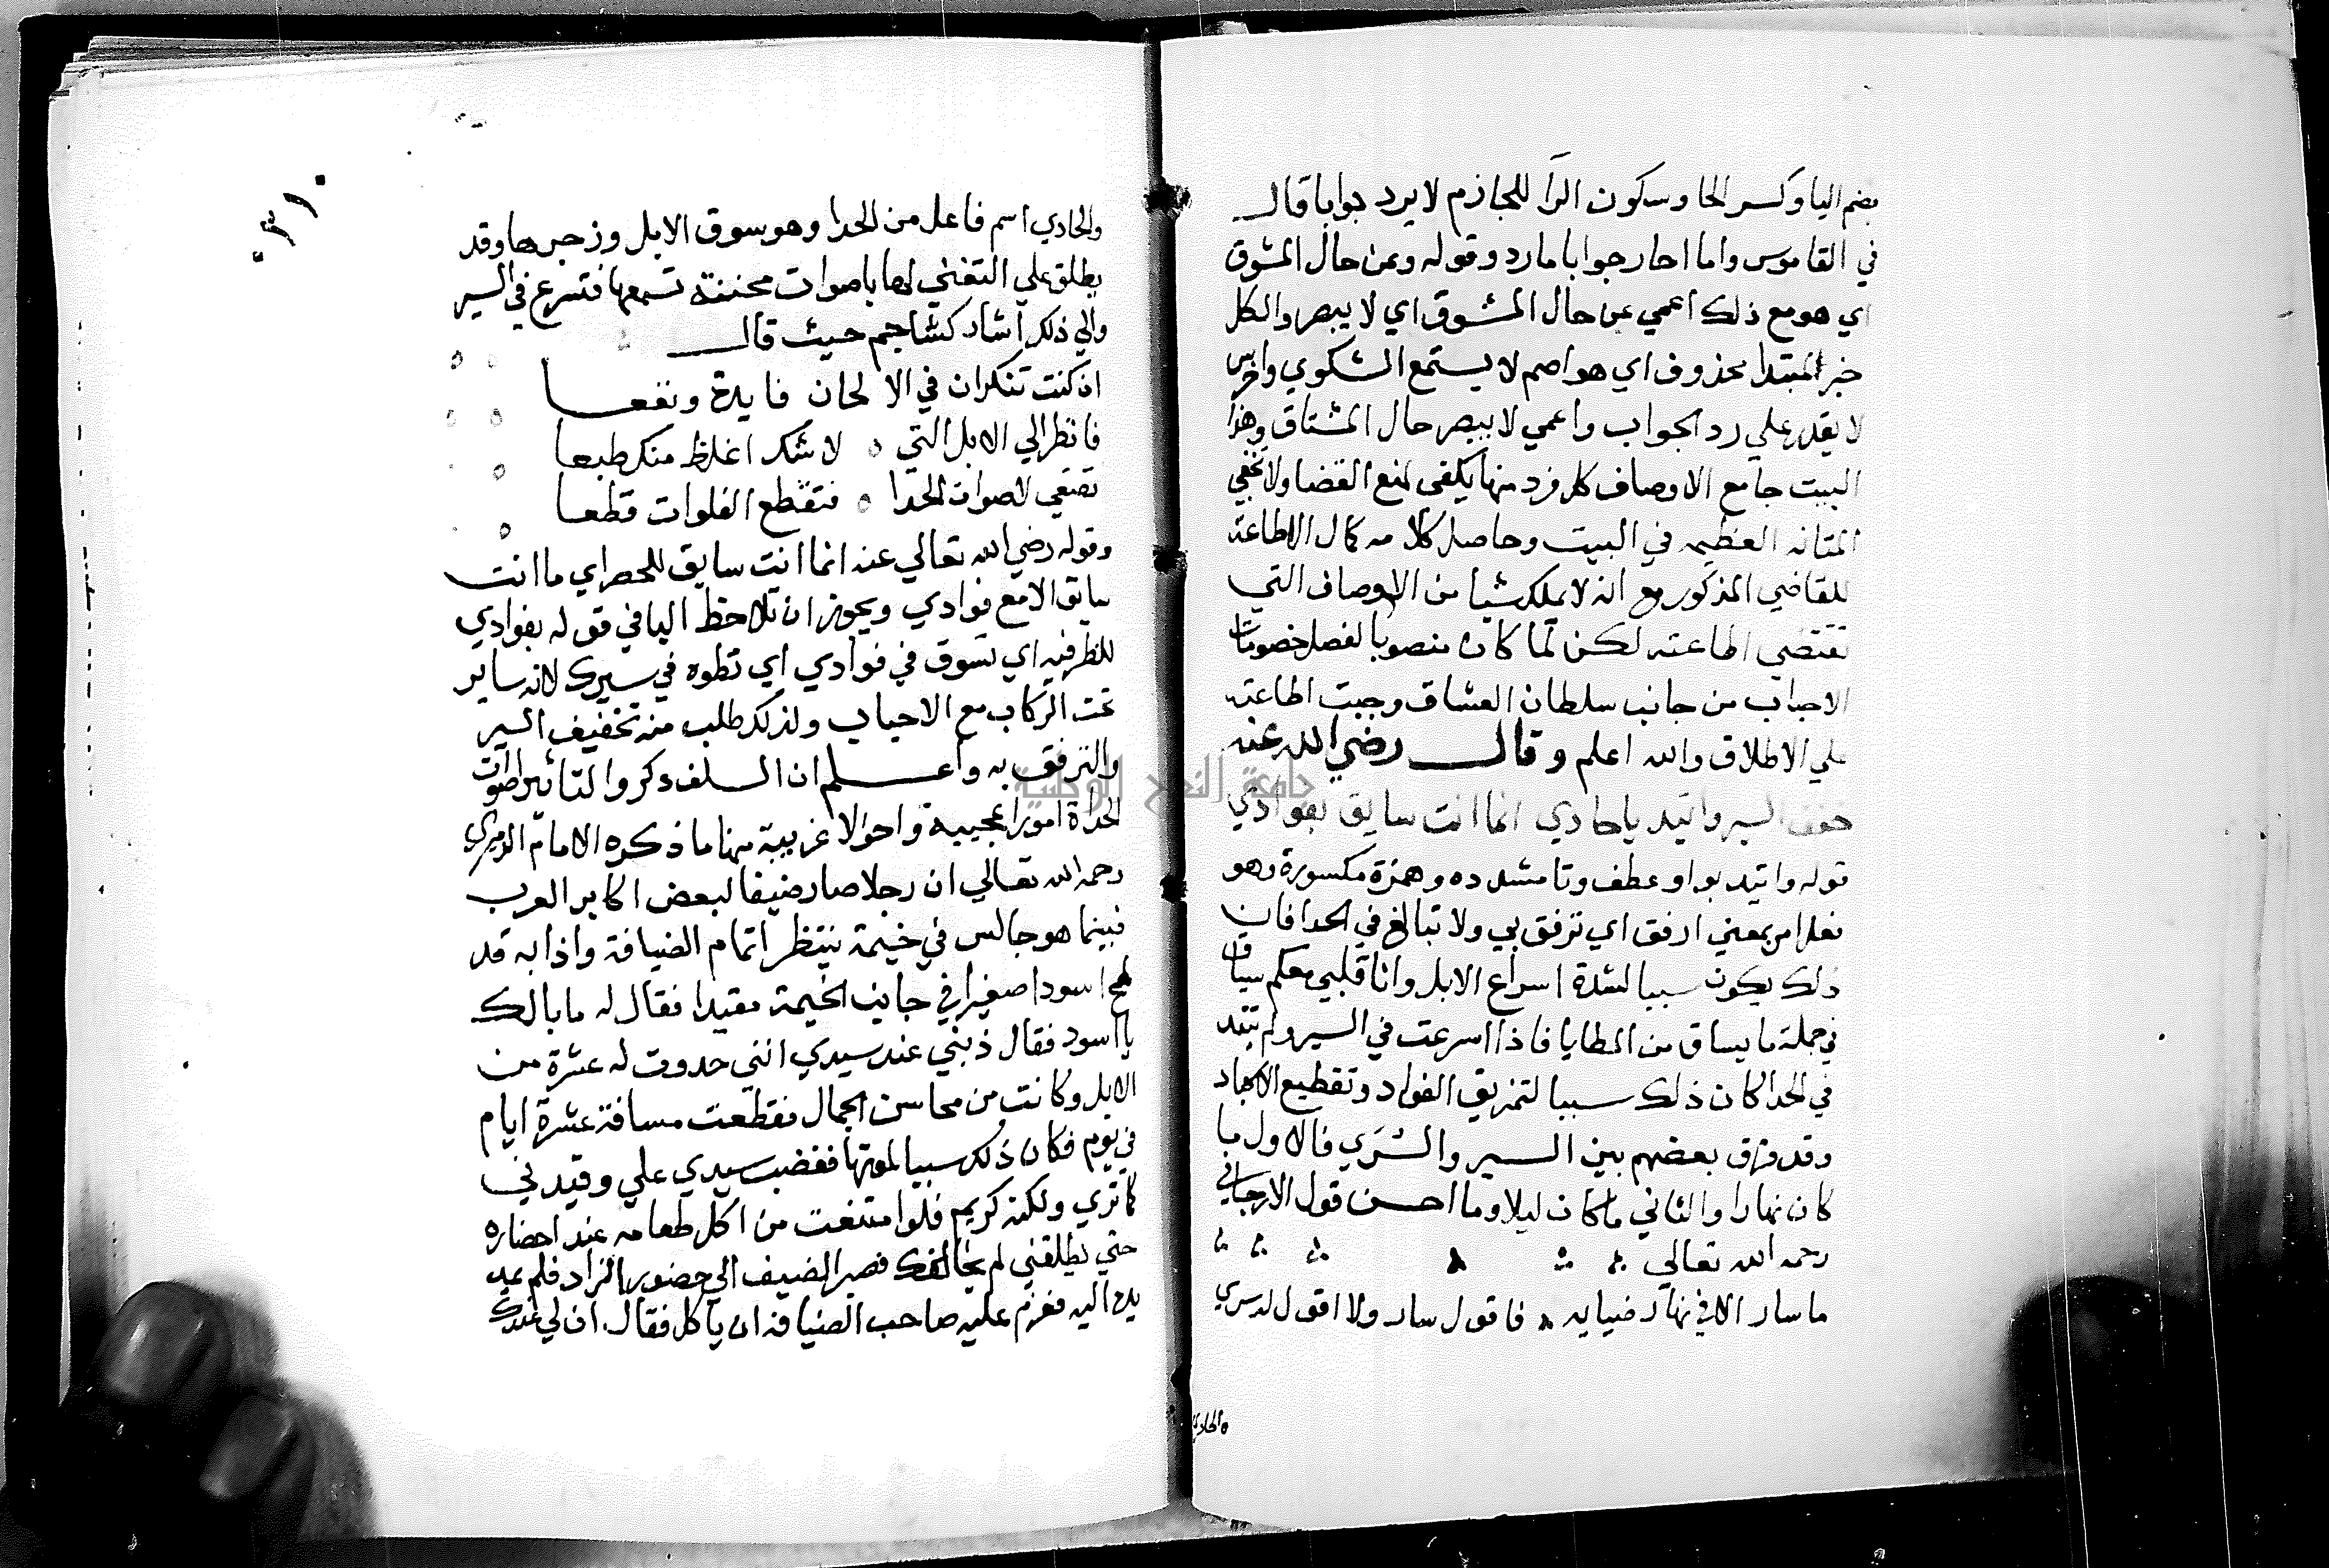 بضم اليا وكسر الحا وسكون الرا للجازم لا يرد جوابا قال
في القاموس واما احار جوابا ما رد وقوله وعن حال المشوق
اي هو مع ذلك اعمي عن حال المشوق اي لا يبصر والكل
خبر المبتدا محذوف اي هو اصم لا يستمع الشكوي واخرس
لا يقدر علي رد الجواب واعمي لا يبصر حال المشتاق وهذا
البيت جامع الاوصاف كل فرد منها يكفي لمنع القضا ولا تخفي
المتانه العظيمه في البيت وحاصل كلامه كمال الاطاعة
للقاضي المذكور مع انه لا يملك شيا من الاوصاف التي
تقتضي اطاعته لكن لما كان منصوبا لفصل خصومات
الاحباب من جانب سلطان العشاق وجبت اطاعته
علي الاطلاق والله اعلم وقال رضي الله عنه
خفف السير واتيد يا حادي انما انت سايق بفوادي
قوله واتيد بواو عطف وتا مشدده وهمزة مكسورة وهو
فعل امر بمعني ارفق اي ترفق بي ولا تبالغ في الحدا فان
ذلك يكون سببا لشدة اسراع الابل وانا قلبي معكم يساق
في جملة ما يساق من المطايا فاذا اسرعت في السير ولم تتئد
في الحدا كان ذلك سببا لتمزيق الفواد وتقطيع الاكباد
وقد فرق بعضهم بين السير والسري فالاول ما
كان نهارا والثاني ما كان ليلا وما احسن قول الارجاني
رحمه الله تعالي
ما سار الا في نهار ضيايه فاقول سار ولا اقول له سري
والحادي
٣١٠
والحادي اسم فاعل من الحدا وهو سوق الابل وزجرها وقد
يطلق علي التغني لها باصوات تسمعها فتسرع في السير
والي ذلك اشار كشاجم حيث قال
ان كنت تنكر ان في الالحان فايدة ونفعا
فانظر الي الابل التي لا شك اغلظ منك طبعا
تصغي لاصوات الحدا فتقطع الفلوات قطعا
وقوله رضي الله تعالي عنه انما انت سايق للحصر اي ما انت
سايق الا مع فوادي ويجوز ان تلاحظ البا في قوله بفوادي
للظرفيه اي تسوق في فوادي اي تطوه في سيرك لانه ساير
تحت الركاب مع الاحباب ولذلك طلب منه تخفيف السير
والترفق به واعلم ان السلف ذكروا لتاثير اصوات
الحداة امورا عجيبة واحوالا غريبة منها ما ذكره الامام الدميري
رحمه الله تعالي ان رجلا صار ضيفا لبعض اكابر العرب
فبينما هو جالس في خيمة ينتظر اتمام الضيافة واذا به قد
لمح اسودا صغيرا في جانب الخيمة مقيدا فقال له ما بالك
يا اسود فقال ذنبي عند سيدي انني حدوت له عشرة من
الابل وكانت من محاسن الجمال فقطعت مسافة عشرة ايام
في يوم فكان ذلك سببا لموتها فغضب سيدي علي وقيدني
كما تري ولكنه كريم فلو امتنعت من اكل طعامه عند احضاره
حتي يطلقني لم يخالفك فصبر الضيف الي حضور الزاد فلم يمد
يده اليه فعزم عليه صاحب الضيافه ان ياكل فقال ان لي عندك
جامعة النجاح الوطنية